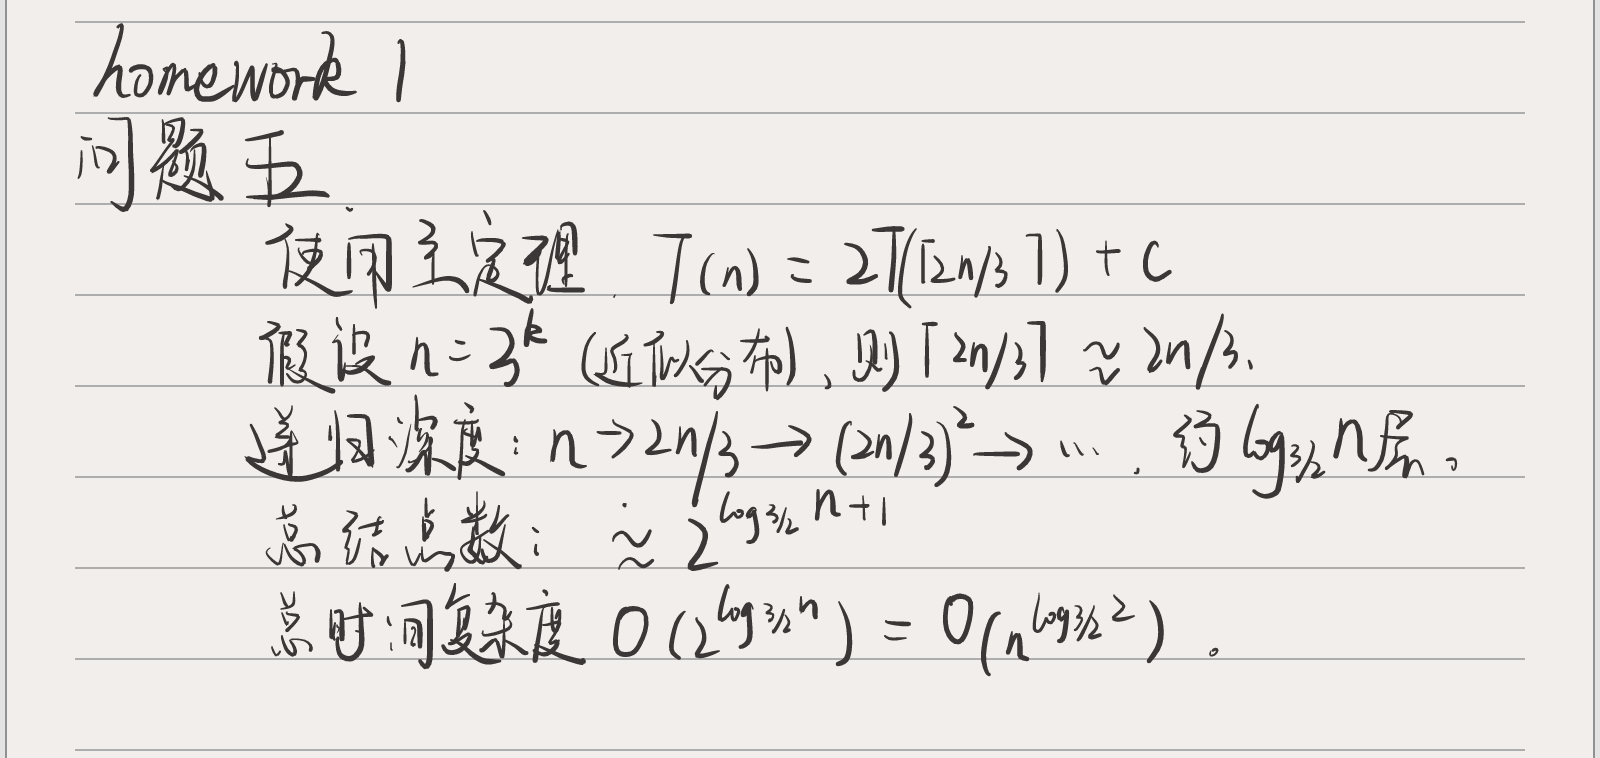 homework 1
问题五
使用主定理. T(n) = 2T(⌈2n/3⌉) + c
假设 n = 3^k (近似分布), 则⌈2n/3⌉ ≈ 2n/3.
递归深度: n → 2n/3 → (2n/3)^2 → …. 约 log_{3/2} n层。
总结点数: ≈ 2^{log_{3/2} n+1}
总时间复杂度 O(2^{log_{3/2} n}) = O(n^{log_{3/2} 2}).